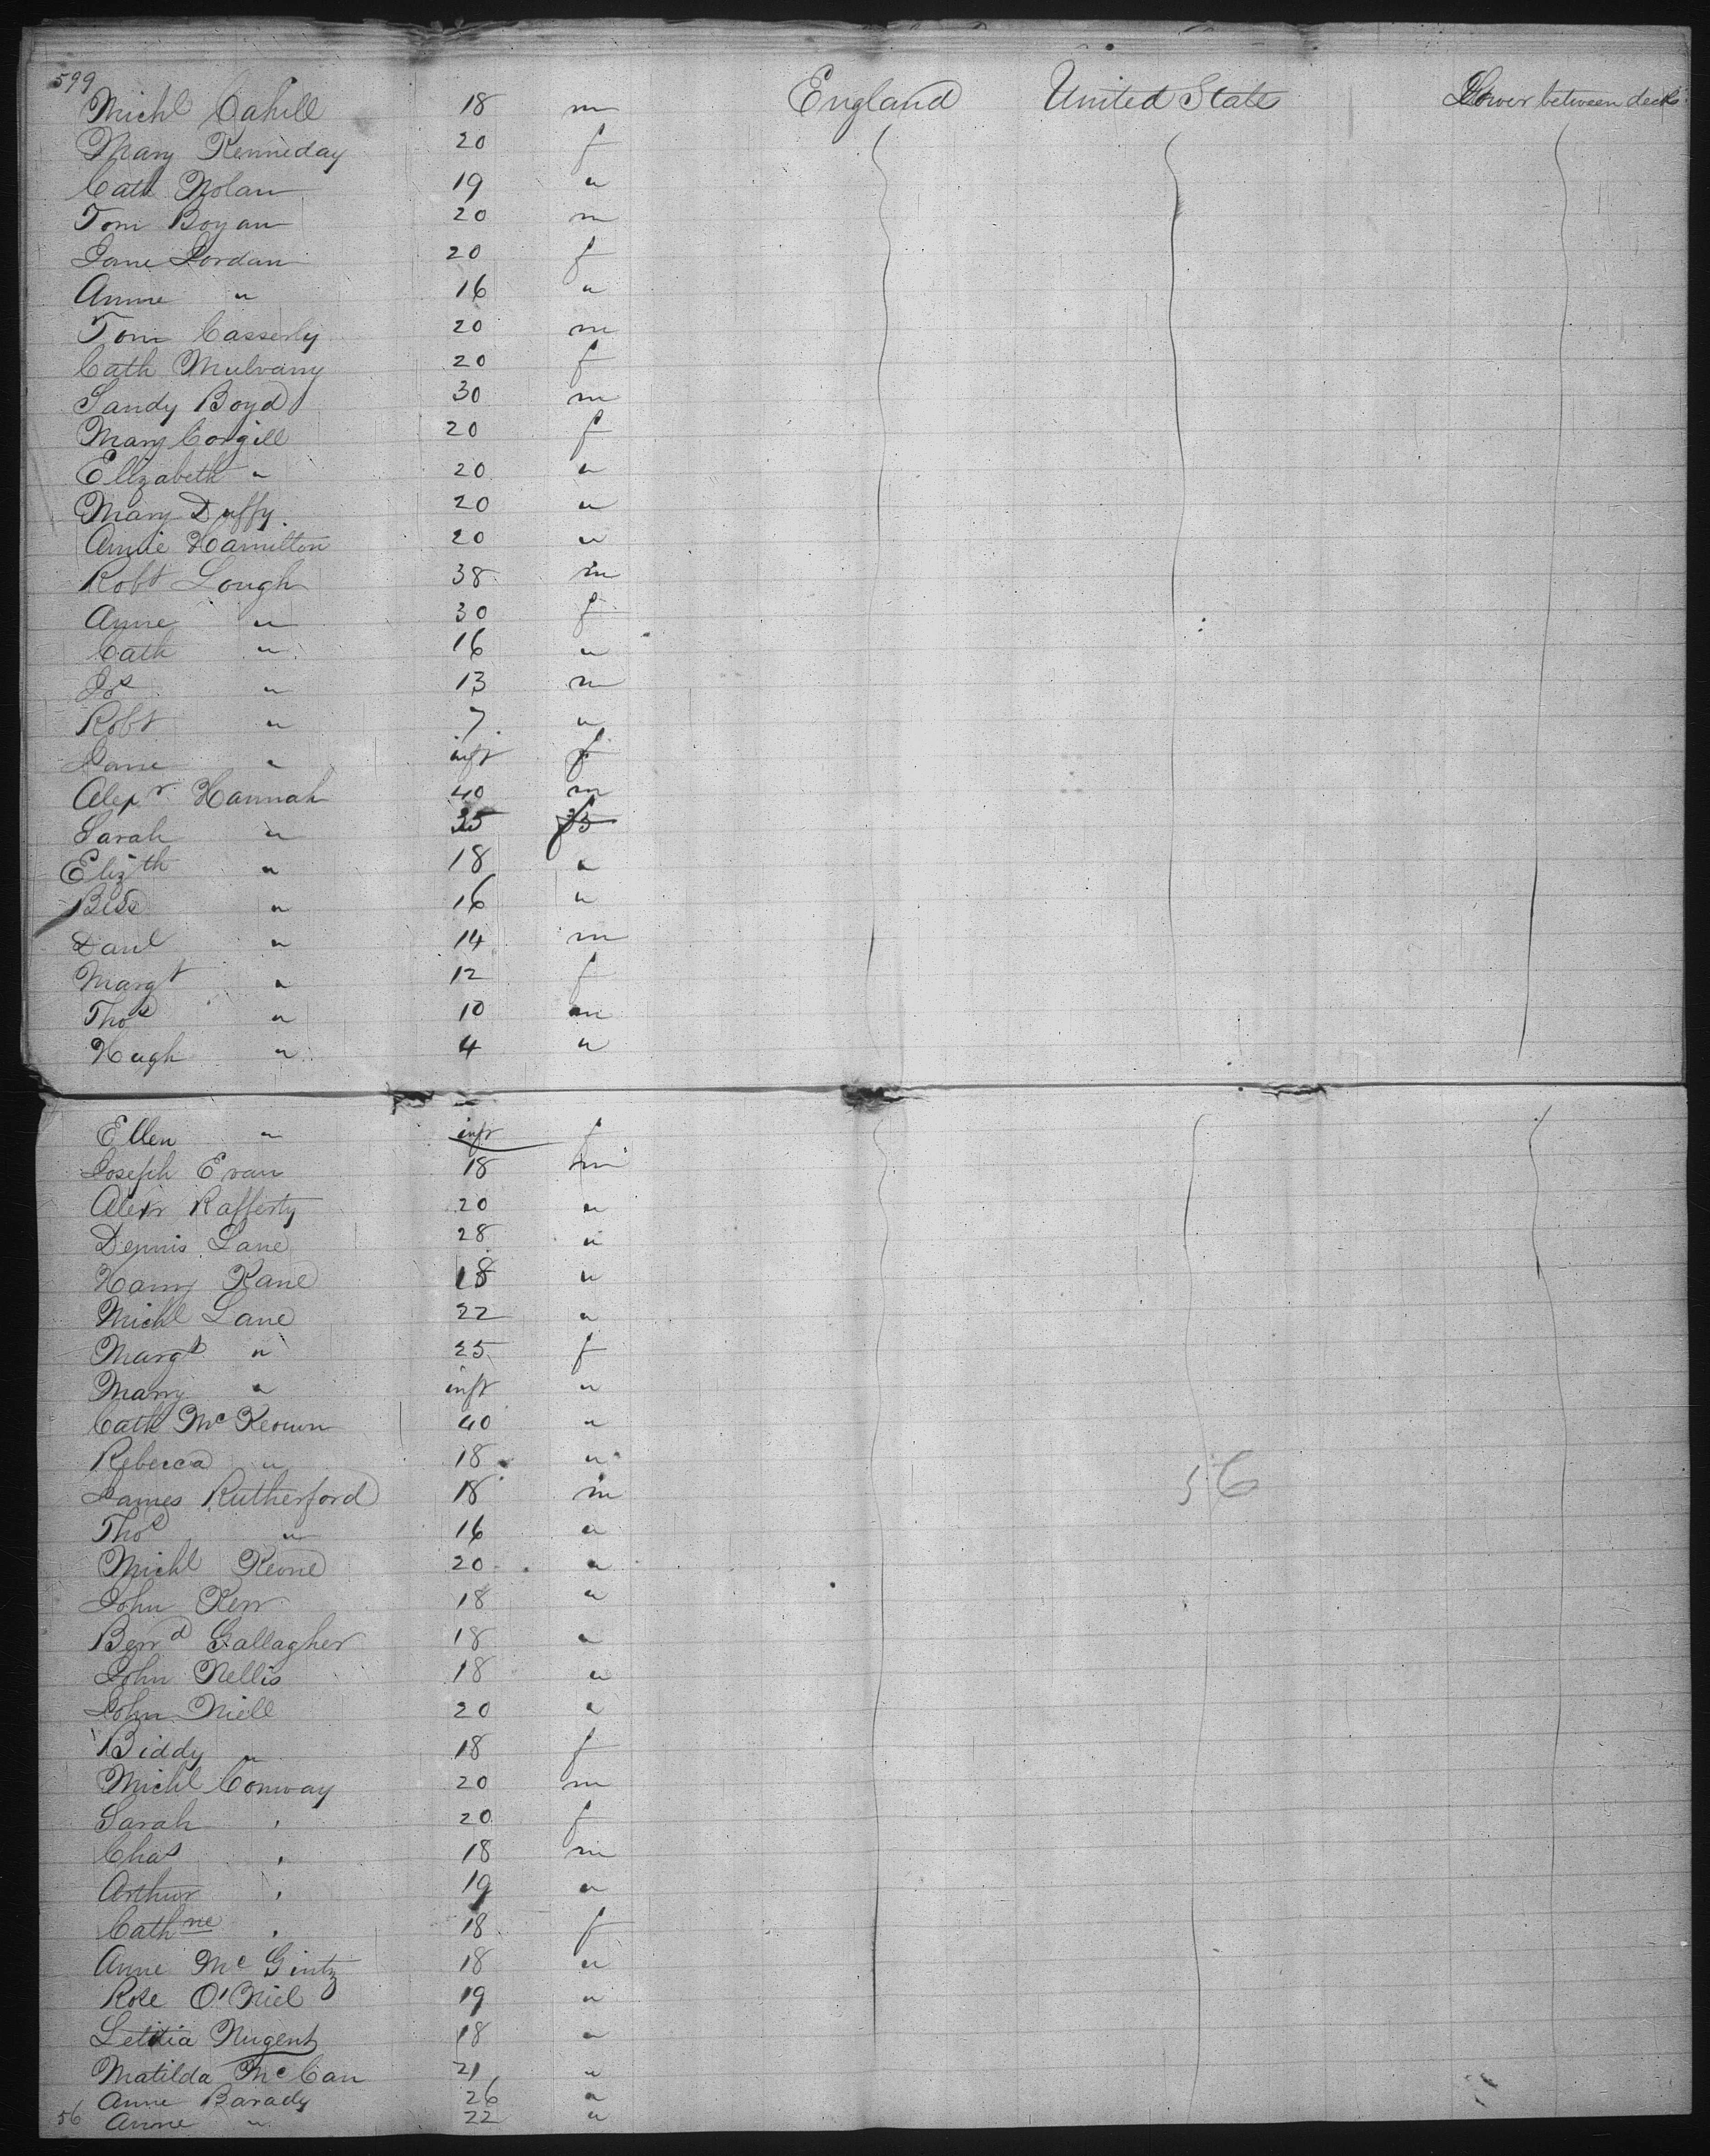 599
Michl Cahill 18 m England United State Lower between decks
Mary Kenneday 20 f
Cath Nolan 19 "
Tom Bogan 20 m
Jane Jordan 20 f
Annie " 16 "
Tom Casserly 20 m
Cath Mulvany 20 f
Sandy Boyd 30 m
Mary Corgill 20 f
Elizabeth " 20 "
Mary Duffy 20 "
Annie Hamilton 20 "
Robt Lough 38 m
Anne " 30 f
Cath " 16 "
Jos " 13 m
Robt " 7 "
Jane " inft f
Alexr Hannah 40 m
Sarah " 35 f
Elizth " 18 "
Bess " 16 "
Danl " 14 m
Margt " 12 f
Thos " 10 m
Hugh " 4 "
Ellen " inft f
Joseph Evan 18 m
Alexr Rafferty 20 "
Dennis Lane 28 "
Harry Kane 18 "
Michl Lane 22 "
Margt " 25 f
Mary " inft "
Cath McKeown 40 "
Rebecca " 18 "
56
James Rutherford 18 m
Thos " 16 "
Michl Keone 20 "
John Kerr 18 "
Bernd Gallagher 18 "
John Nellis 18 "
John Niell 20 "
Biddy " 18 f
Michl Conway 20 m
Sarah " 20 f
Chas " 18 m
Arthur " 19 "
Cathne " 18 f
Anne McGinty 18 "
Rose O'Niel 19 "
Letitia Nugent 18 "
Matilda McCan 21 "
Anne Barady 26 "
56 Anne " 22 "